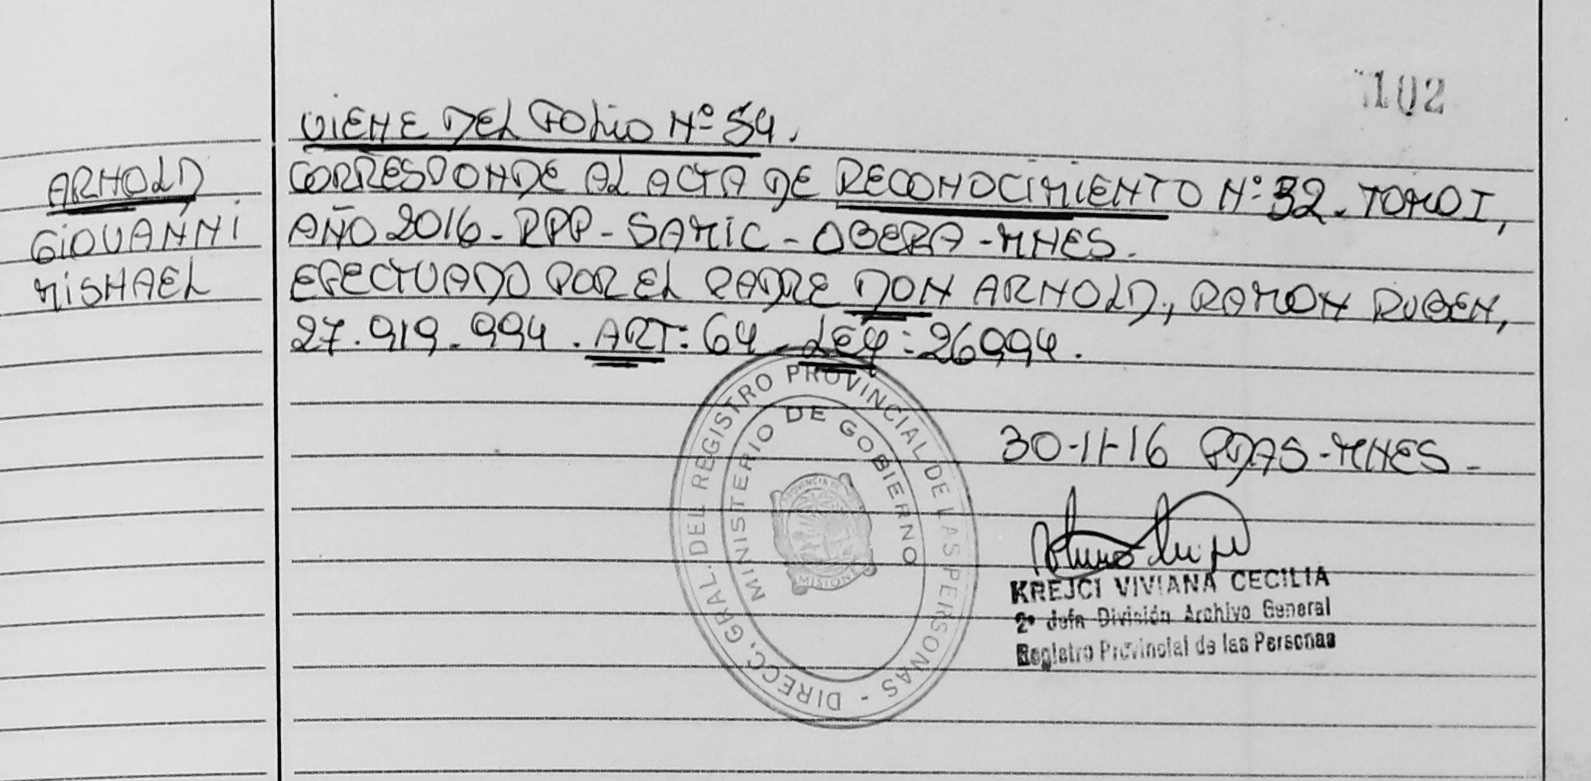 102
VIENE DEL FOLIO Nº 54.
ARNOLD
GIOVANNI
MISHAEL
CORRESPONDE AL ACTA DE RECONOCIMIENTO Nº 32. TOMO I,
AÑO 2016 - RPP - SAMIC - OBERA - MNES.
EFECTUADO POR EL PADRE DON ARNOLD, RAMON RUBEN,
27.919.994. ART: 64 - LEY: 26994.
30-11-16 PDAS-MNES-
DIRECC. GRAL. DEL REGISTRO PROVINCIAL DE LAS PERSONAS -
MINISTERIO DE GOBIERNO
PROVINCIA DE
MISIONES
KREJCI VIVIANA CECILIA
2º Jefa División Archivo General
Registro Provincial de las Personas